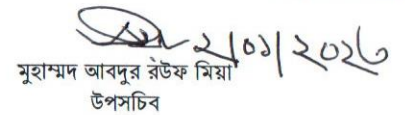 ২/০১/২০২৩
মুহাম্মদ আবদুর রউফ মিয়া
উপসচিব